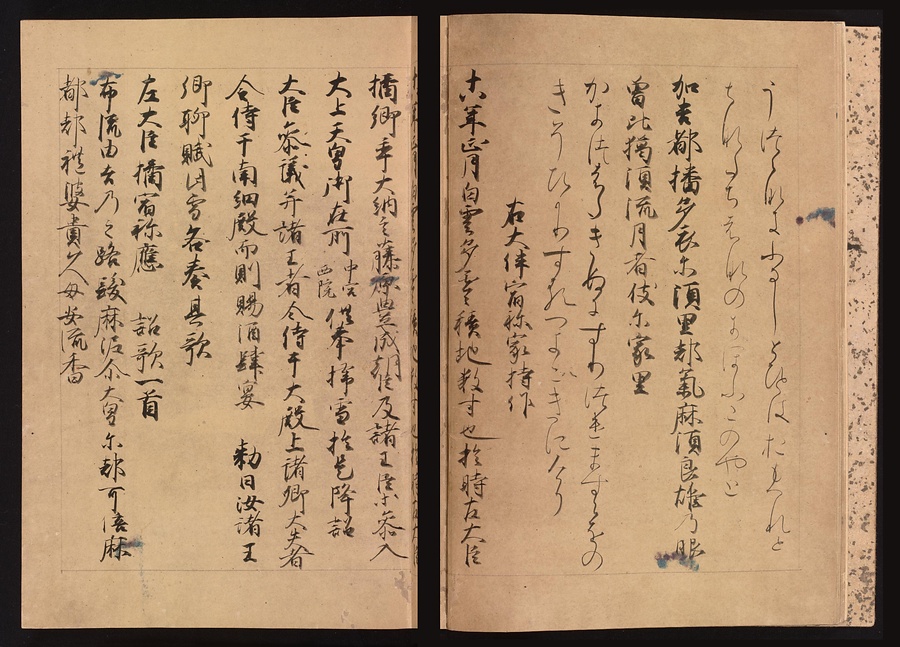 うつらなくふるしとひとはおもへれと
はなたちはなのにほふこのやと
加吉都播多衣尓須里都氣麻須良雄乃服
曽比獦須流月者伎尓家里
かきつはたきぬにすりつけますらをの
きそひかりするつきはきにけり
右大伴宿祢家持作
十八年正月白雪多零積地数寸也於時左大臣
橘卿率大納言藤原豊成朝臣及諸王臣等参入
太上天皇御在所中宮西院供奉掃雪於是降詔
大臣参議并諸王者令侍于大殿上諸卿大夫者
令侍于南細殿而則賜酒肆宴 勅曰汝諸王
卿聊賦此雪各奏其歌
左大臣橘宿祢應 詔歌一首
布流由吉乃之路髪麻泥尓大皇尓都可倍麻
都礼婆貴久母安流香